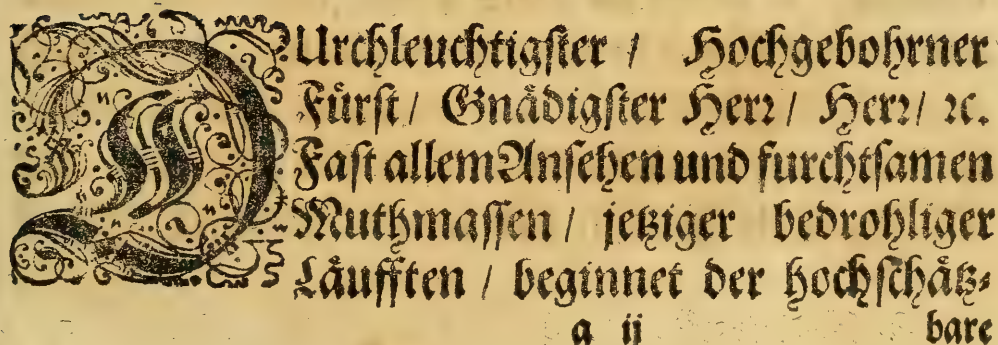 DUrchleuchtigſter / Hochgebohrner
Fürſt / Gnådigſter Herꝛ / Herꝛ / ꝛc.
Faſt allem Anſehen und furchtſamen
Muthmaſſen / jetziger bedrohliger
Låufften / beginnet der hochſchåtz-
a ij bare